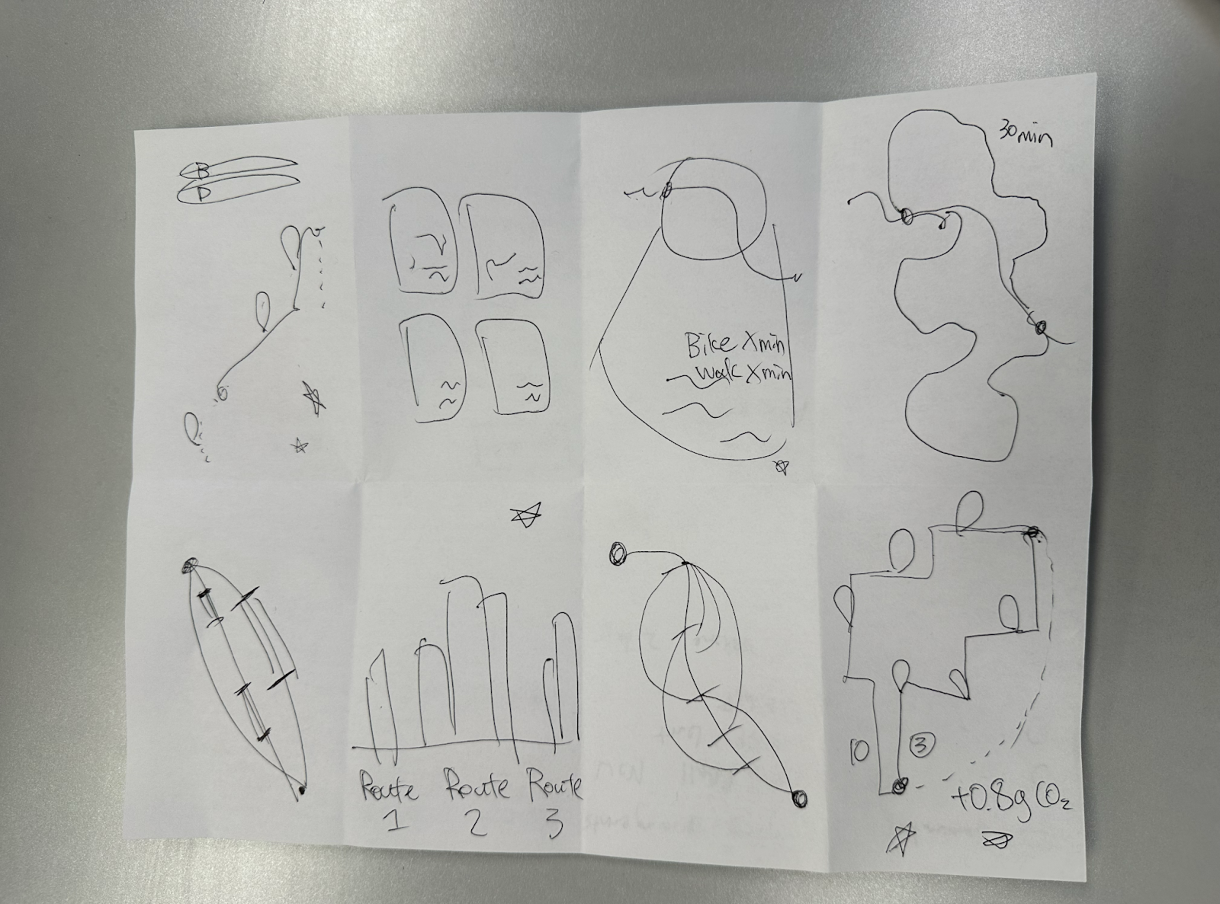 B
D
30min
Bike Xmin
walk Xmin
Route 1
Route 2
Route 3
10
3
+0.8g CO₂